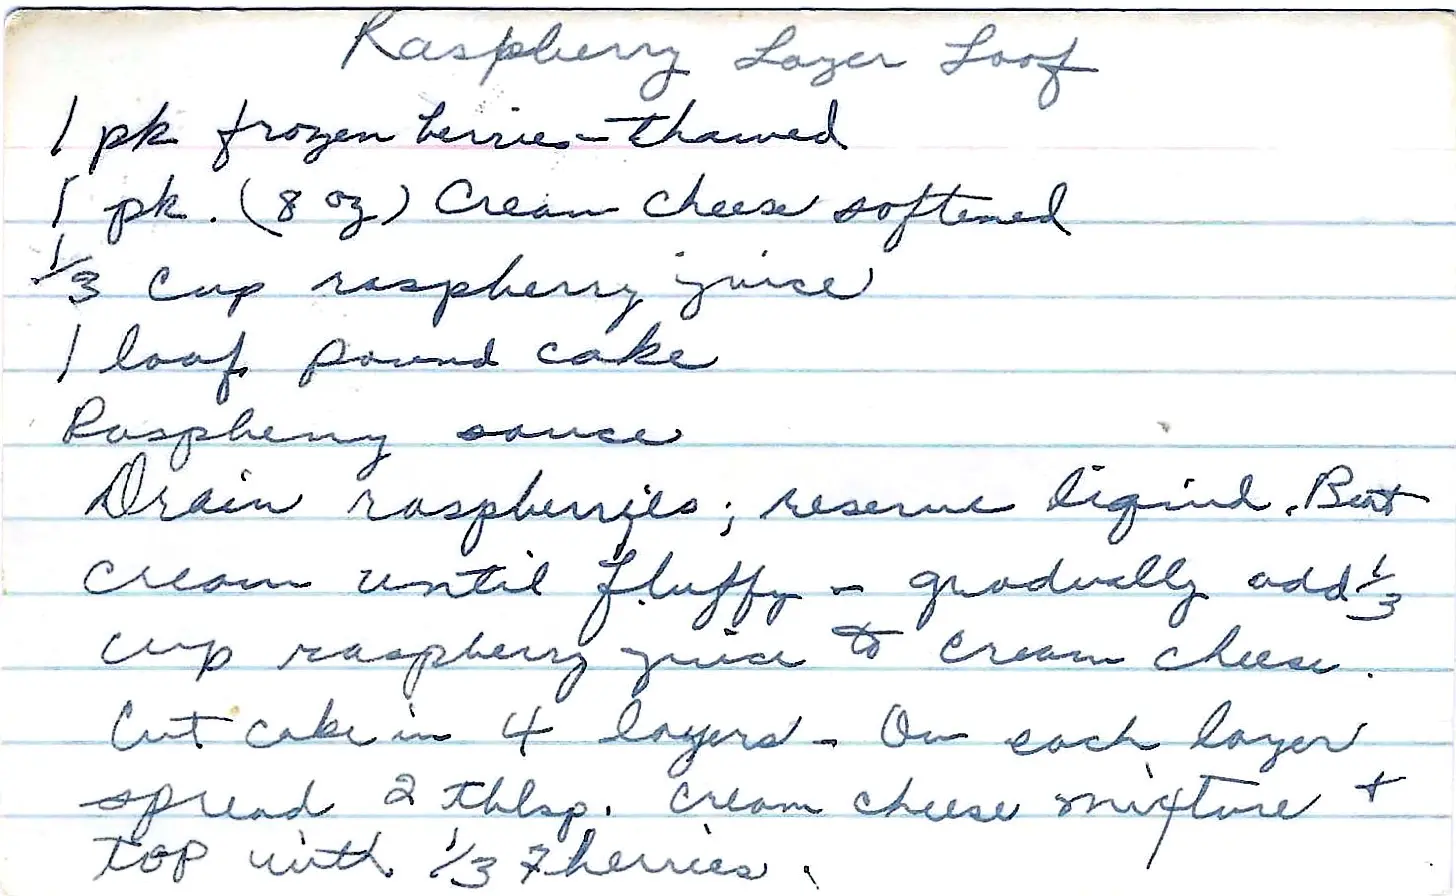 Raspberry Layer Loaf
1 pk frozen berries - thawed
1 pk. (8 oz) Cream cheese softened
1/3 Cup raspberry juice
1 loaf pound cake
Raspberry sauce
Drain raspberries; reserve liquid. Beat
cream until fluffy - gradually add 1/3
cup raspberry juice to cream cheese.
Cut cake in 4 layers - On each layer
spread 2 tblsp. cream cheese mixture +
top with 1/3 berries.